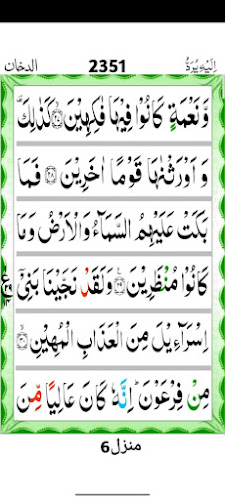 الدخان 2351 اِلَيْهِ يُرَدُّ
وَّ نَعْمَةٍ كَانُوْا فِيْهَا فٰكِهِيْنَ ۙ‏﴿۲۷﴾ كَذٰلِكَ ۟
وَ اَوْرَثْنٰهَا قَوْمًا اٰخَرِيْنَ ﴿۲۸﴾ فَمَا
بَكَتْ عَلَيْهِمُ السَّمَآءُ وَالْاَرْضُ وَمَا
كَانُوْا مُنْظَرِيْنَ ﴿۲۹﴾ وَلَقَدْ نَجَّيْنَا بَنِيْۤ
اِسْرَآءِيْلَ مِنَ الْعَذَابِ الْمُهِيْنِ ۙ﴿۳۰﴾
مِنْ فِرْعَوْنَ ؕ اِنَّهٗ كَانَ عَالِيًا مِّنَ
منزل 6